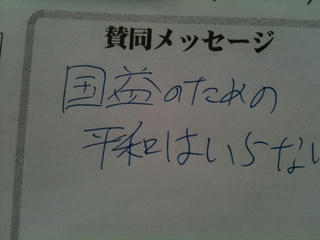 賛同メッセージ
国益のための
平和はいらない